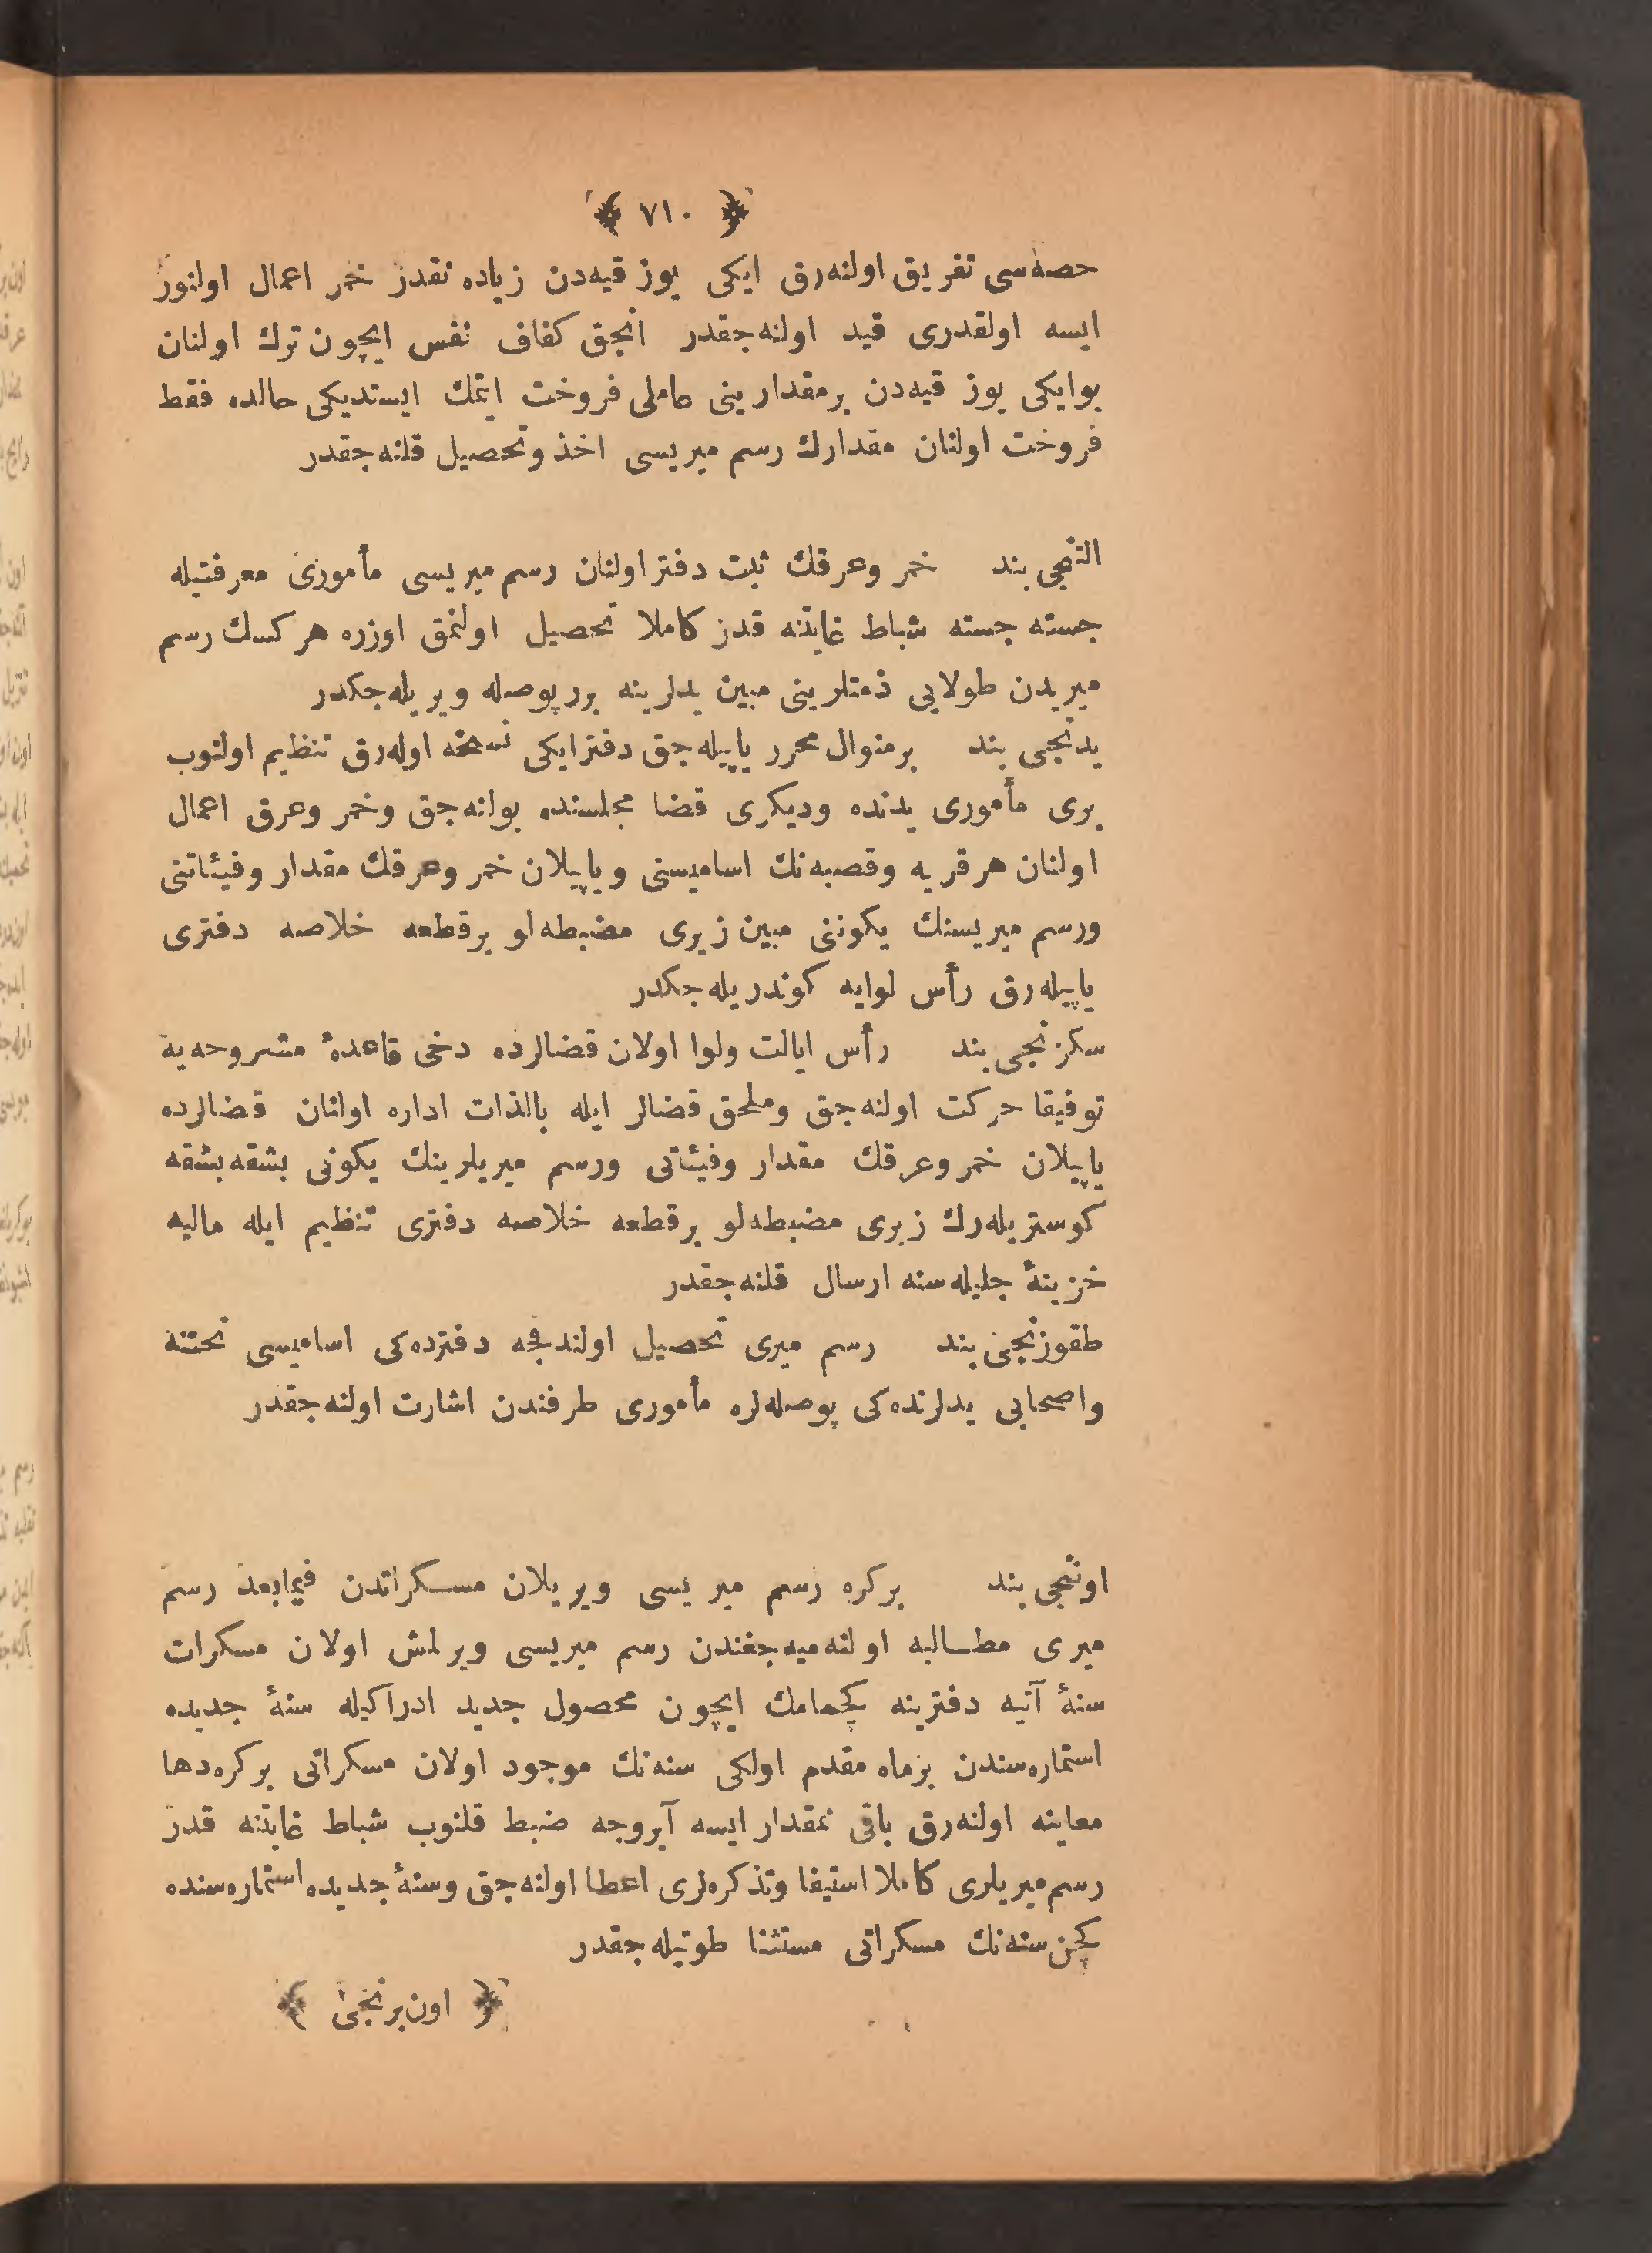 ﴿ ٧١٠ ﴾
حصه‌سی تفریق اولنه‌رق ایکی یوز قیه‌دن زیاده نقدر خمر اعمال اولنور
ایسه اولقدری قید اولنه‌جقدر انجق کفاف نفس ایچون ترك اولنان
بوایکی یوز قیه‌دن برمقدارینی عاملی فروخت ایتمك ایستدیکی حالده فقط
فروخت اولنان مقدارك رسم میریسی اخذ وتحصیل قلنه‌جقدر
التنجی بند خمر وعرقك ثبت دفتر اولنان رسم میریسی مأموری معرفتیله
جسته جسته شباط غایتنه قدر کاملا تحصیل اولنمق اوزره هرکسك رسم
میریدن طولایی ذمتلرینی مبین یدلرینه برر پوصله ویریله‌جکدر
یدنجی بند برمنوال محرر یاپیله‌جق دفتر ایکی نسخه اوله‌رق تنظیم اولنوب
بری مأموری یدنده ودیکری قضا مجلسنده بولنه‌جق وخمر وعرق اعمال
اولنان هرقریه وقصبه‌نك اسامیسنی ویاپیلان خمر وعرقك مقدار وفیئاتنی
ورسم میریسنك یکوننی مبین زیری مضبطه‌لو برقطعه خلاصه دفتری
یاپیله‌رق رأس لوایه کوندریله‌جکدر
سکزنجی بند رأس ایالت ولوا اولان قضالرده دخی قاعدهٔ مشروحه‌یه
توفیقا حرکت اولنه‌جق وملحق قضالر ایله بالذات اداره اولنان قضالرده
یاپیلان خمر وعرقك مقدار وفیئاتی ورسم میریلرینك یکونی بشقه بشقه
کوستریله‌رك زیری مضبطه‌لو برقطعه خلاصه دفتری تنظیم ایله مالیه
خزینهٔ جلیله‌سنه ارسال قلنه‌جقدر
طقوزنجی بند رسم میری تحصیل اولندقجه دفترده‌کی اسامیسی تحتنه
واصحابی یدلرنده‌کی پوصله‌لره مأموری طرفندن اشارت اولنه‌جقدر
اوننجی بند برکره رسم میریسی ویریلان مسکراتدن فیمابعد رسم
میری مطالبه اولنه‌میه‌جغندن رسم میریسی ویرلمش اولان مسکرات
سنهٔ آتیه دفترینه کچمامك ایچون محصول جدید ادراکیله سنهٔ جدیده
استماره‌سندن برماه مقدم اولکی سنه‌نك موجود اولان مسکراتی برکره‌دها
معاینه اولنه‌رق باقی نمقدار ایسه آیروجه ضبط قلنوب شباط غایتنه قدر
رسم میریلری کاملا استیفا وتذکره‌لری اعطا اولنه‌جق وسنهٔ جدیده استماره‌سنده
کچن سنه‌نك مسکراتی مستثنا طوتیله‌جقدر
﴿ اون‌برنجی ﴾